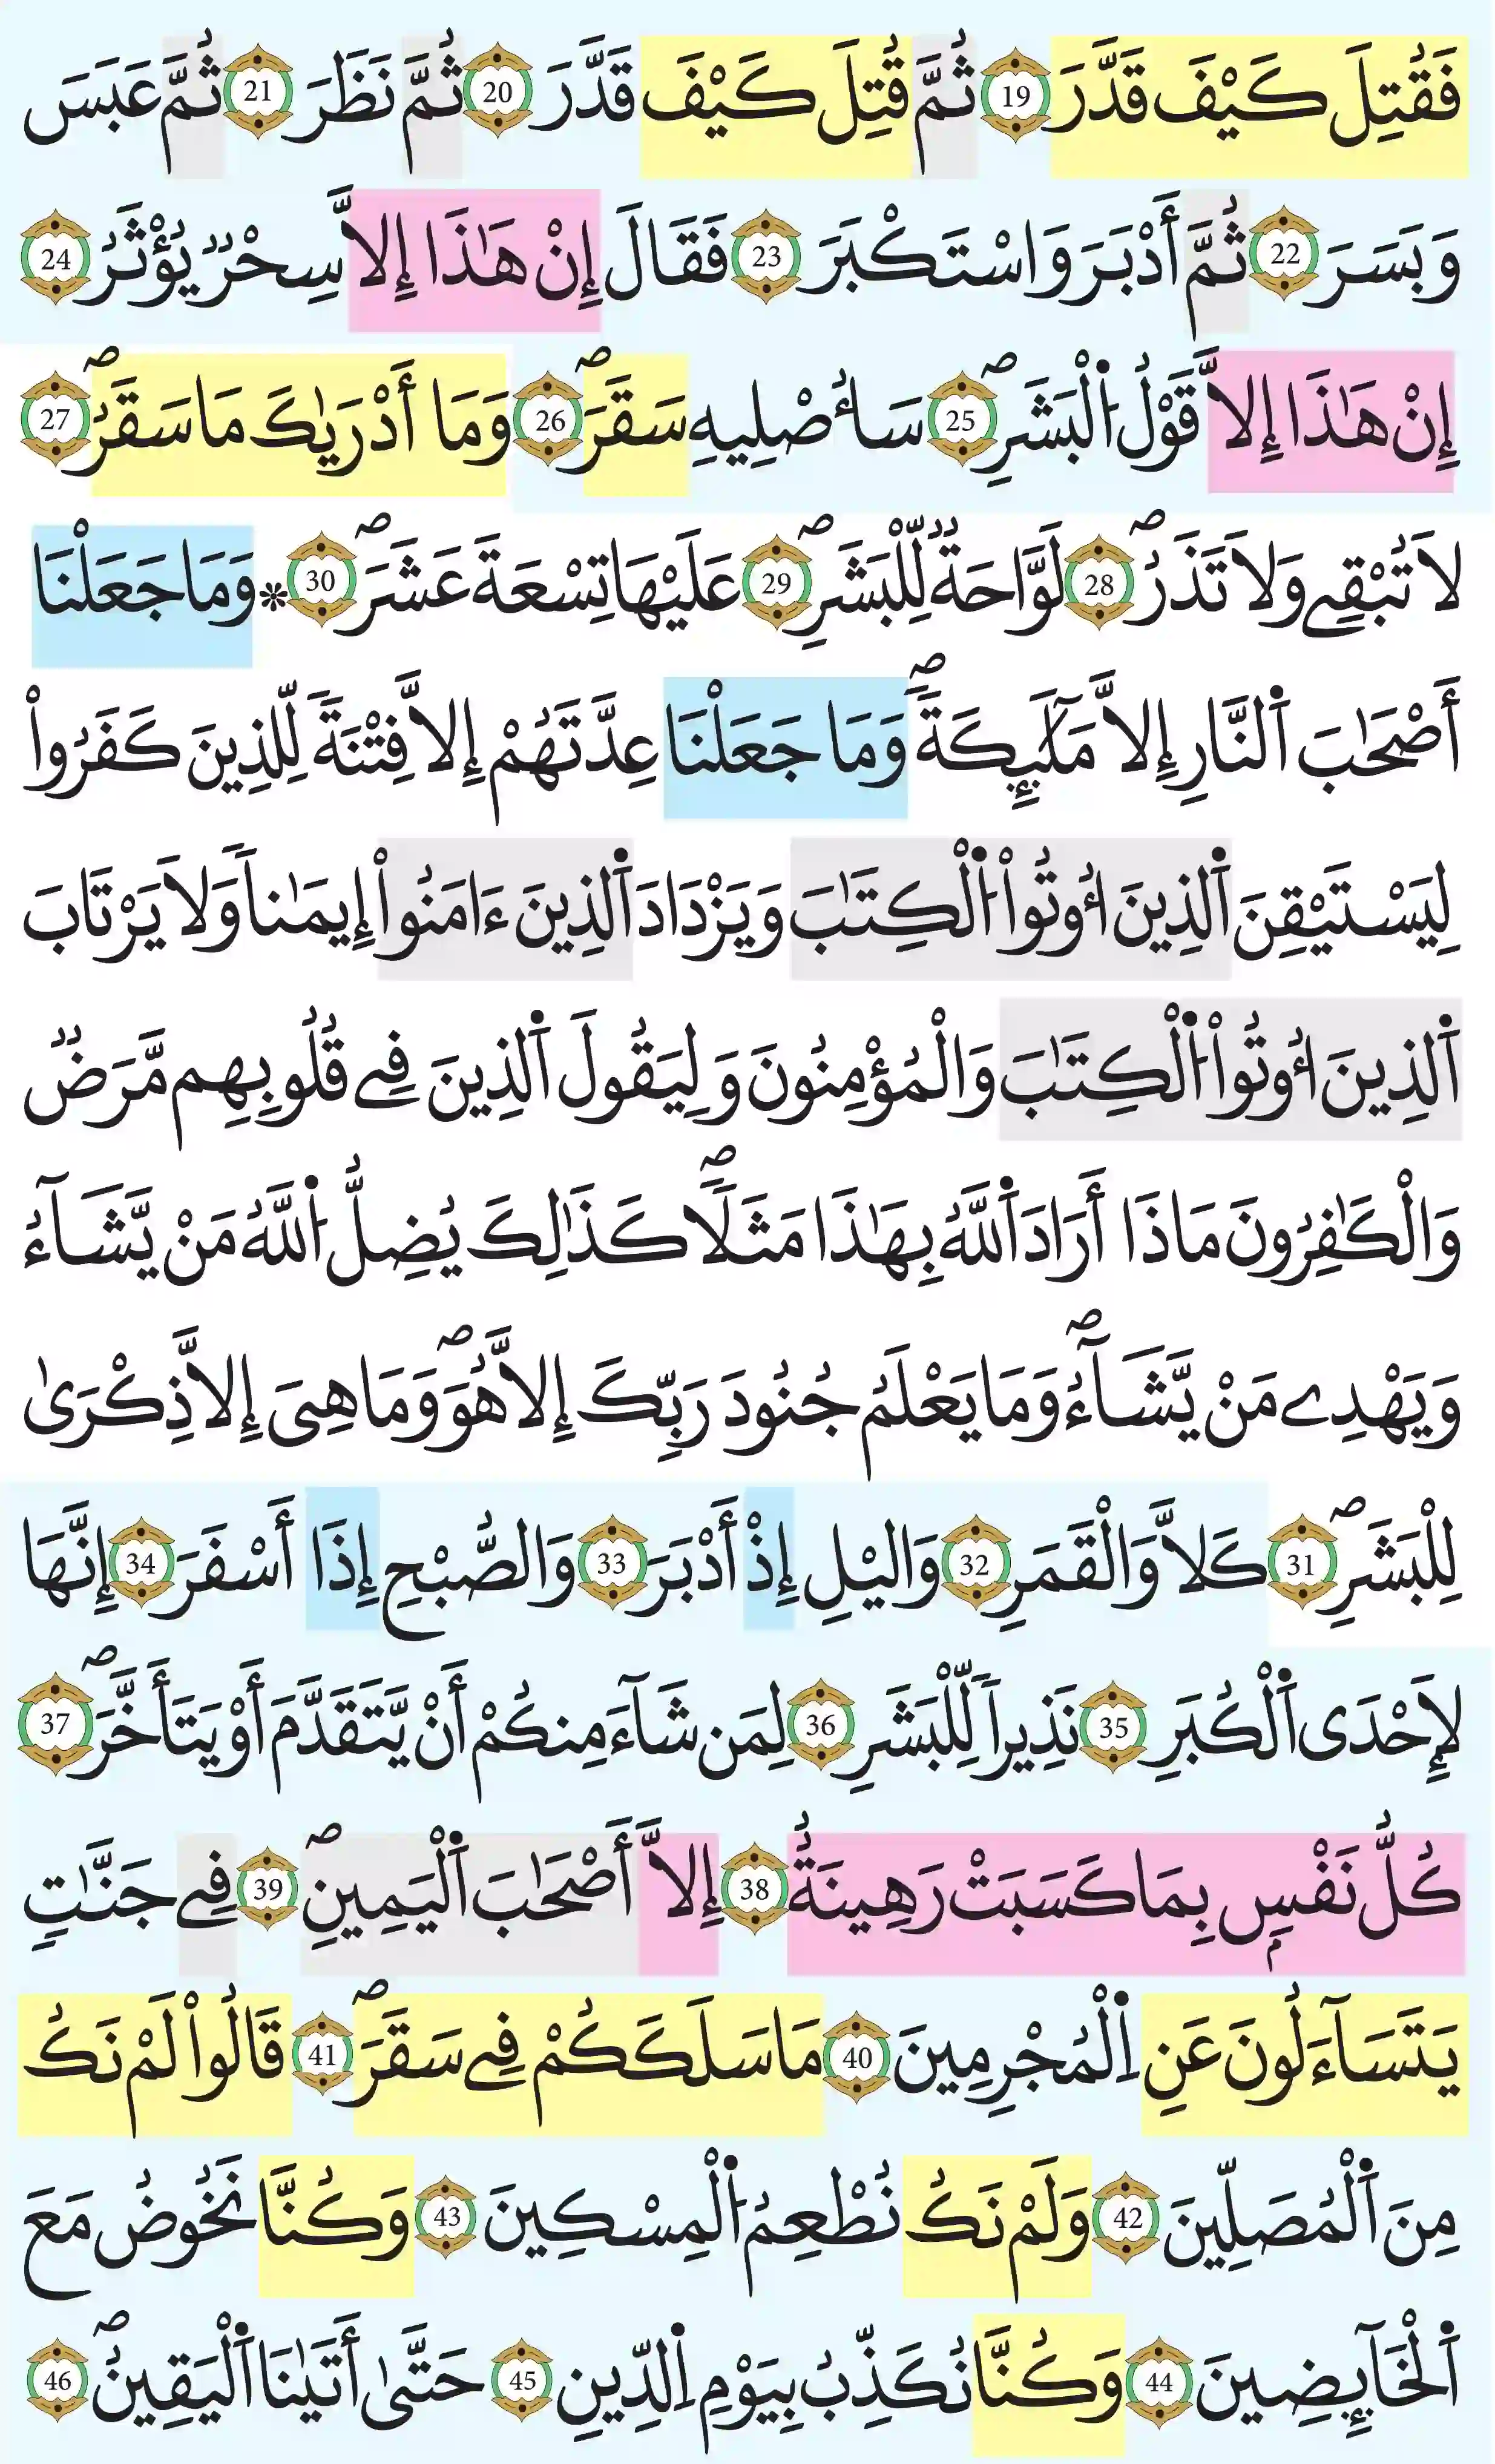 فَقُتِلَ كَيْفَ قَدَّرَ 19 ثُمَّ قُتِلَ كَيْفَ قَدَّرَ 20 ثُمَّ نَظَرَ 21 ثُمَّ عَبَسَ
وَبَسَرَ 22 ثُمَّ أَدْبَرَ وَاسْتَكْبَرَ 23 فَقَالَ إِنْ هَٰذَا إِلاَّ سِحْرٌ يُؤْثَرُ 24
إِنْ هَٰذَا إِلاَّ قَوْلُ اُ۬لْبَشَرِۖ 25 سَأُصْلِيهِ سَقَرَۖ 26 وَمَا أَدْرَيٰكَ مَا سَقَرُۖ 27
لَا تُبْقِے وَلَا تَذَرُۖ 28 لَوَّاحَةٌ لِّلْبَشَرِۖ 29 عَلَيْهَا تِسْعَةَ عَشَرَۖ 30 * وَمَا جَعَلْنَا
أَصْحَٰبَ اَ۬لنَّارِ إِلاَّ مَلَٰٓئِكَةٗۖ وَمَا جَعَلْنَا عِدَّتَهُمْ إِلاَّ فِتْنَةٗ لِّلذِينَ كَفَرُواْ
لِيَسْتَيْقِنَ اَ۬لذِينَ أُوتُواْ اُ۬لْكِتَٰبَ وَيَزْدَادَ اَ۬لذِينَ ءَامَنُواْ إِيمَٰناٗ وَلَا يَرْتَابَ
اَ۬لذِينَ أُوتُواْ اُ۬لْكِتَٰبَ وَالْمُؤْمِنُونَ وَلِيَقُولَ اَ۬لذِينَ فِے قُلُوبِهِم مَّرَضٞ
وَالْكَٰفِرُونَ مَاذَا أَرَادَ اَ۬للَّهُ بِهَٰذَا مَثَلاٗۖ كَذَٰلِكَ يُضِلُّ اُ۬للَّهُ مَنْ يَّشَآءُ
وَيَهْدِے مَنْ يَّشَآءُۖ وَمَا يَعْلَمُ جُنُودَ رَبِّكَ إِلاَّ هُوَۖ وَمَا هِىَ إِلاَّ ذِكْرَىٰ
لِلْبَشَرِۖ 31 كَلاَّ وَالْقَمَرِ 32 وَاليْلِ إِذْ أَدْبَرَ 33 وَالصُّبْحِ إِذَا أَسْفَرَ 34 إِنَّهَا
لَإِحْدَى اَ۬لْكُبَرِ 35 نَذِيراٗ لِّلْبَشَرِ 36 لِمَن شَآءَ مِنكُمْ أَنْ يَّتَقَدَّمَ أَوْ يَتَأَخَّرَۖ 37
كُلُّ نَفْسِۢ بِمَا كَسَبَتْ رَهِينَةٌ 38 إِلاَّ أَصْحَٰبَ اَ۬لْيَمِينِۖ 39 فِے جَنَّٰتٖ
يَتَسَآءَلُونَ عَنِ اِ۬لْمُجْرِمِينَ 40 مَا سَلَكَكُمْ فِے سَقَرَۖ 41 قَالُواْ لَمْ نَكُ
مِنَ اَ۬لْمُصَلِّينَ 42 وَلَمْ نَكُ نُطْعِمُ اُ۬لْمِسْكِينَ 43 وَكُنَّا نَخُوضُ مَعَ
اَ۬لْخَآئِضِينَ 44 وَكُنَّا نُكَذِّبُ بِيَوْمِ اِ۬لدِّينِ 45 حَتَّىٰ أَتَيٰنَا اَ۬لْيَقِينُۖ 46